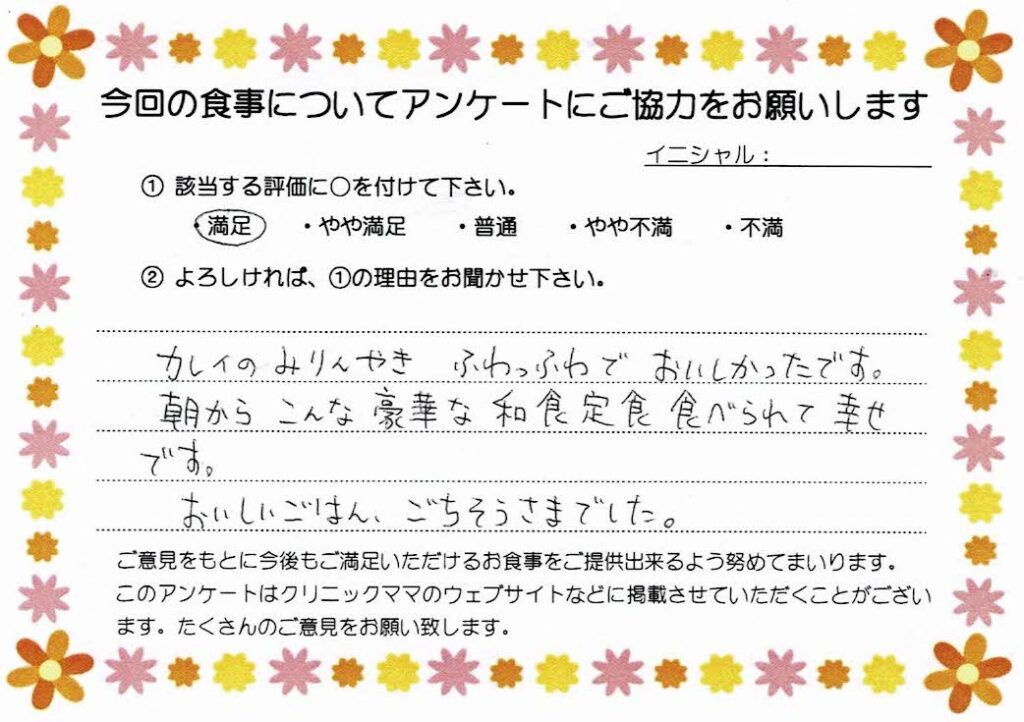 今回の食事についてアンケートにご協力をお願いします
イニシャル：
① 該当する評価に○を付けて下さい。
・満足 ・やや満足 ・普通 ・やや不満 ・不満
② よろしければ、①の理由をお聞かせ下さい。
カレイのみりんやき ふわっふわで おいしかったです。
朝から こんな 豪華な 和食定食 食べられて 幸せ
です。
おいしいごはん、ごちそうさまでした。
ご意見をもとに今後もご満足いただけるお食事をご提供出来るよう努めてまいります。
このアンケートはクリニックママのウェブサイトなどに掲載させていただくことがござい
ます。たくさんのご意見をお願い致します。